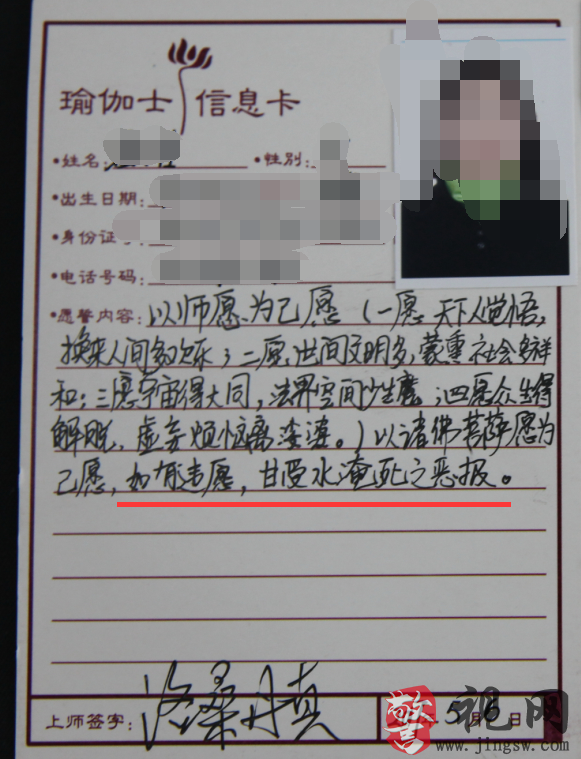 瑜伽士 信息卡
•姓名:
•性别:
•出生日期:
•身份证
•电话号码:
•愿誓内容: 以师愿为己愿（一愿天下人觉悟,
换来人间多欢乐；二愿世间文明多,蒙熏社会多祥
和；三愿宇宙得大同,法界空间少生魔；四愿众生得
解脱,虚妄烦恼离娑婆。）以诸佛菩萨愿为
己愿,如有违愿,甘受水淹死之恶报。
上师签字: 洛桑丹真
5月6日
警视网
www.jingsw.com